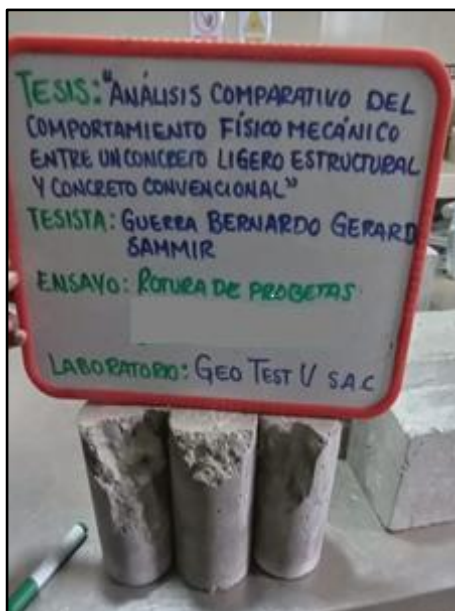 TESIS: "ANÁLISIS COMPARATIVO DEL
COMPORTAMIENTO FÍSICO MECÁNICO
ENTRE UN CONCRETO LIGERO ESTRUCTURAL
Y CONCRETO CONVENCIONAL"
TESISTA: GUERRA BERNARDO GERARD
SAMMIR
ENSAYO: ROTURA DE PROBETAS
LABORATORIO: GEO TEST V S.A.C